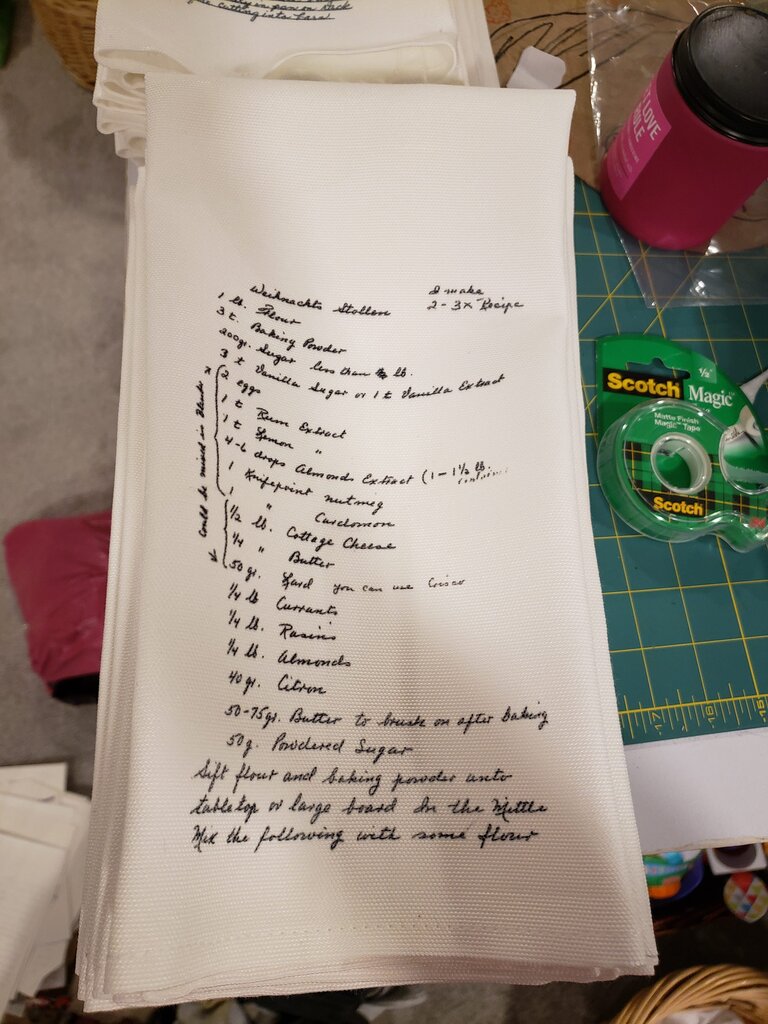 in pan on Rack
cutting into bars
Weihnachts Stollen
I make
2-3x Recipe
1 lb. Flour
3 t. Baking Powder
200gr. Sugar less than ½ lb.
3 t Vanilla Sugar or 1 t Vanilla Extract
2 eggs
1 t Rum Extract
1 t Lemon "
4-6 drops Almonds Extract (1-1½ lb.
1 Knifepoint nutmeg
1 " Cardomon
½ lb. Cottage Cheese
¼ " Butter
50gr. Lard you can use Crisco
¼ lb Currants
¼ lb. Rasins
¼ lb. Almonds
40gr. Citron
50-75gr. Butter to brush on after baking
50g. Powdered Sugar
Sift flour and baking powder unto
tabletop or large board In the Mittle
Mix the following with some flour
Could be mixed in
LOVE
Scotch Magic
½"
Matte Finish
Magic Tape
Scotch
17
16
15